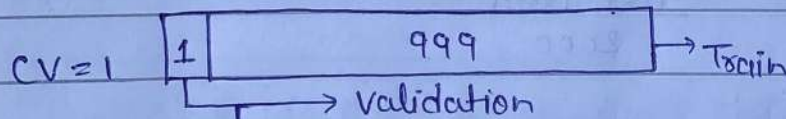 CV = 1 1 999 → Train
→ validation